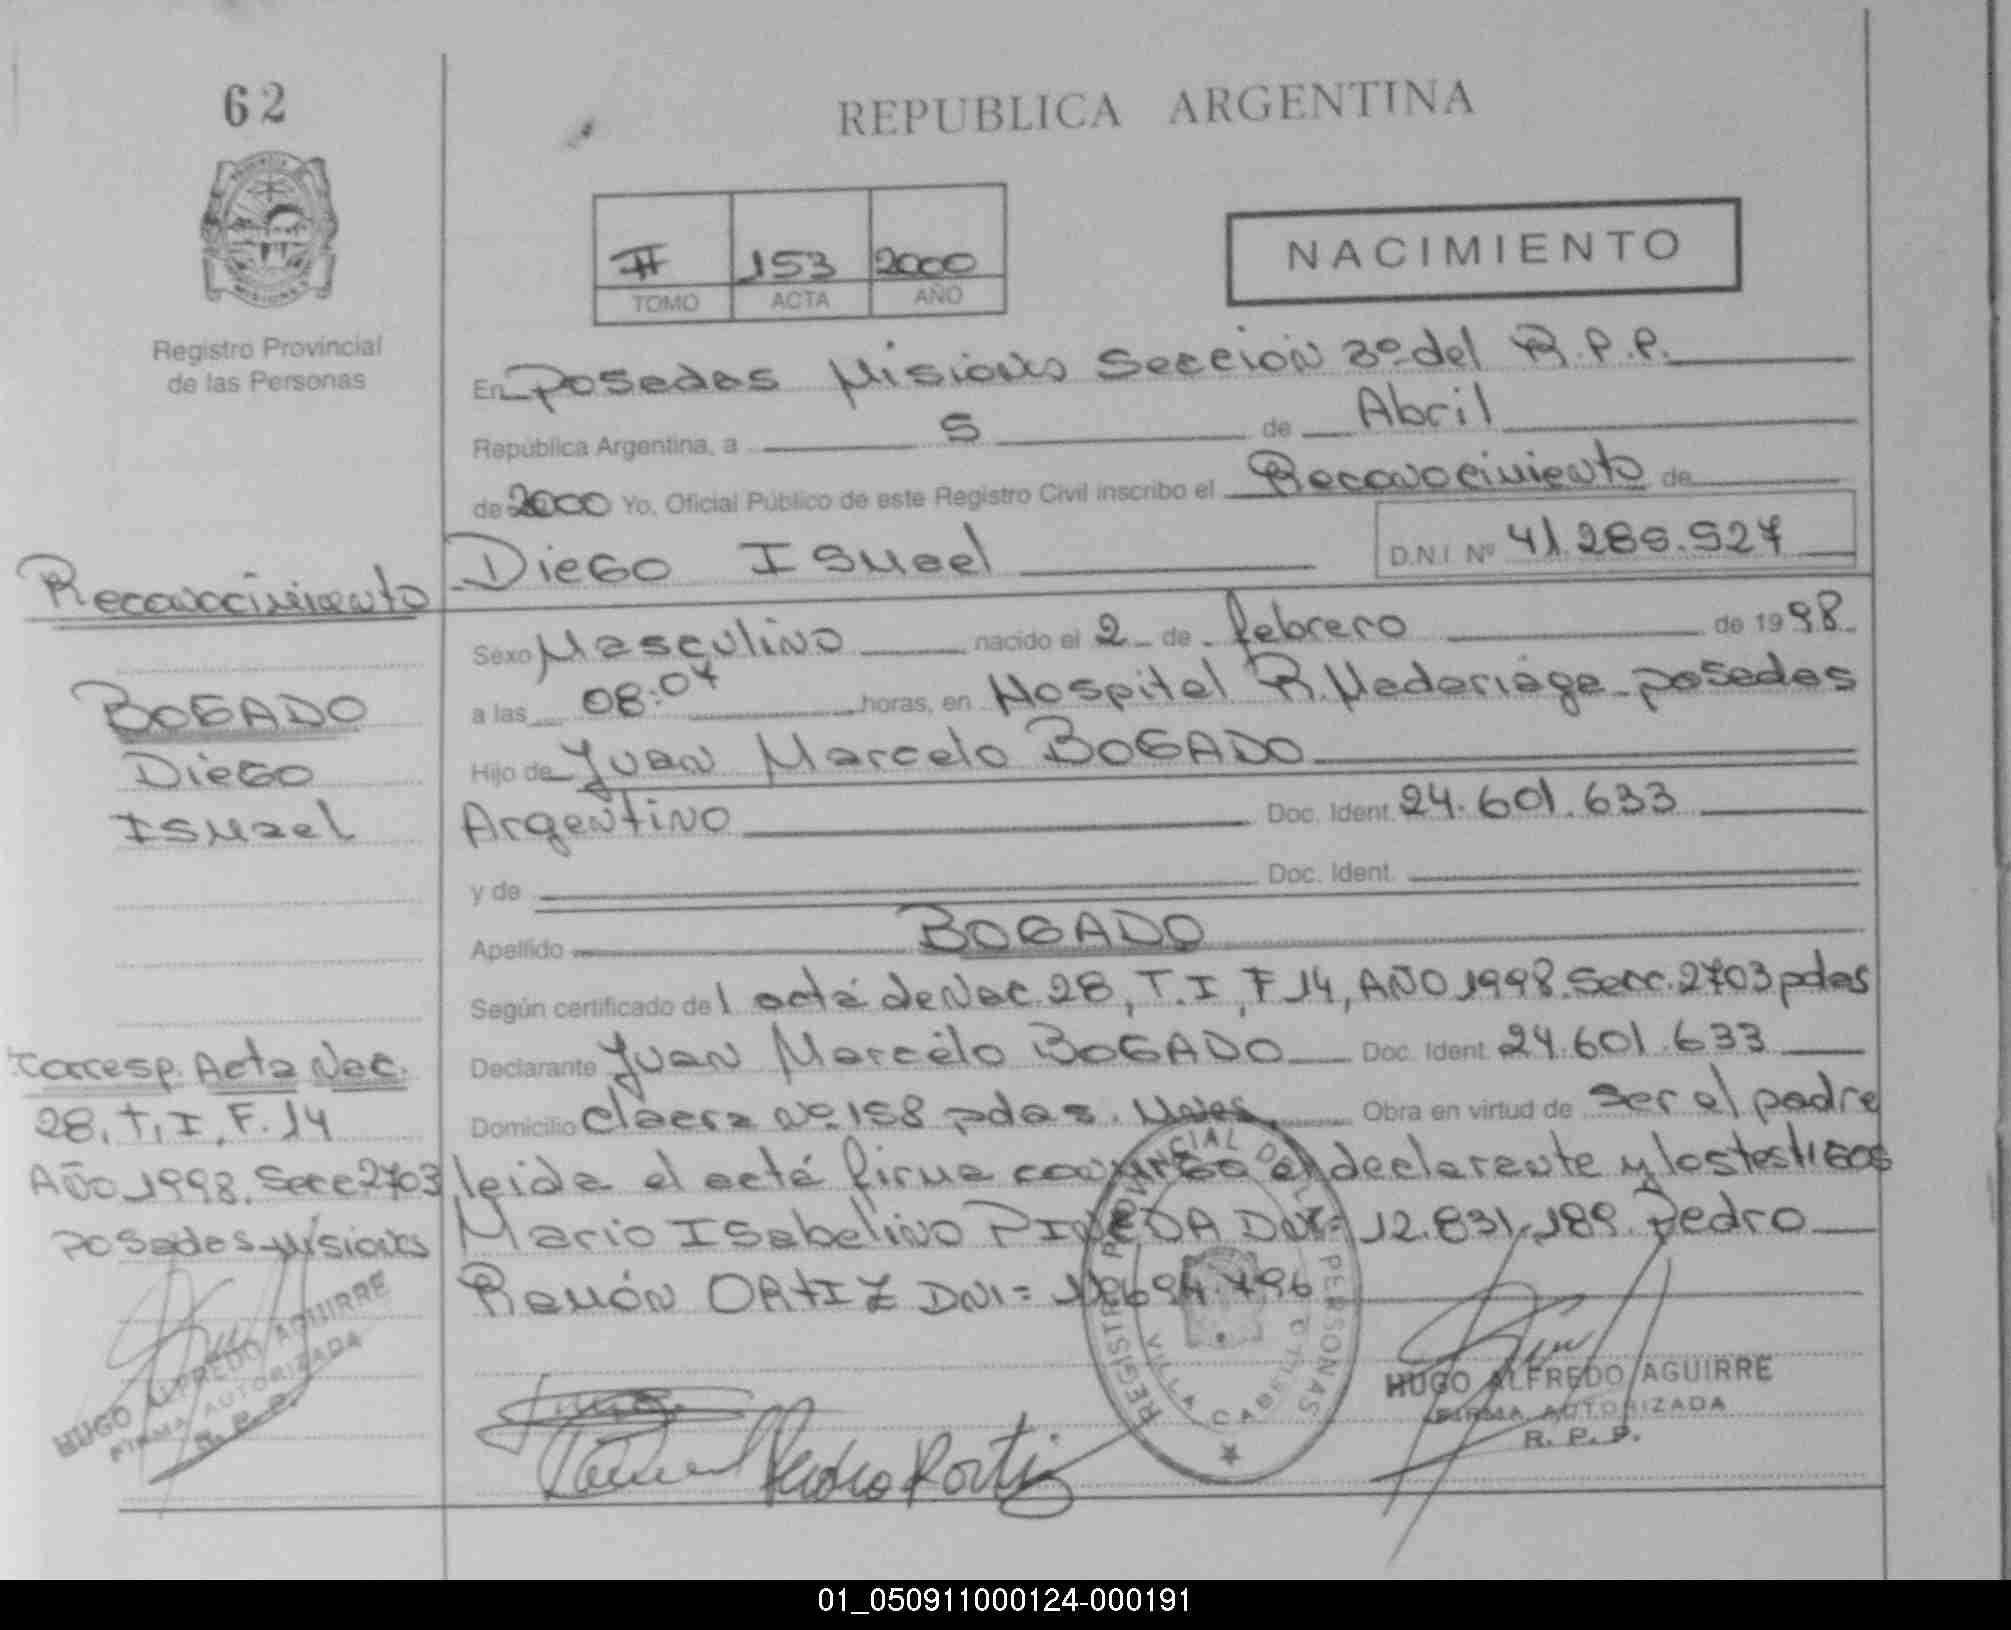 62
REPUBLICA ARGENTINA
II 153 2000
TOMO ACTA AÑO
NACIMIENTO
Registro Provincial
de las Personas
En Posadas Misiones Sección 3º del R.P.P.
República Argentina, a 5 de Abril
de 2000 Yo, Oficial Público de este Registro Civil inscribo el Reconocimiento de
Diego Ismael D.N.I. Nº 41.289.927
Sexo Masculino nacido el 2 de febrero de 1998
a las 08:07 horas, en Hospital R. Madariaga Posadas
Hijo de Juan Marcelo BOGADO
Argentino Doc. Ident. 24.601.633
y de Doc. Ident.
Apellido BOGADO
Según certificado de l acta de Nac. 28, T. I, F 14, AÑO 1998. Secc. 2703 pdas
Declarante Juan Marcelo BOGADO Doc. Ident. 24.601.633
Domicilio N° 158 pdas. Mnes. Obra en virtud de ser el padre
leida el acta firma conmigo el declarante y los testigos
Mario Isabelino PINEDA DNI= 12.831.189. Pedro
Ramón ORTIZ DNI=
Reconocimiento
BOGADO
Diego
Ismael
Corresp. Acta Nac.
28, T. I, F. 14
Año 1998. Secc. 2703
Posadas Misiones
HUGO ALFREDO AGUIRRE
FIRMA AUTORIZADA
R. P. P.
Pedro R Ortiz
REGISTRO PROVINCIAL DE LAS PERSONAS
VILLA CABELLO
HUGO ALFREDO AGUIRRE
FIRMA AUTORIZADA
R. P. P.
01_050911000124-000191